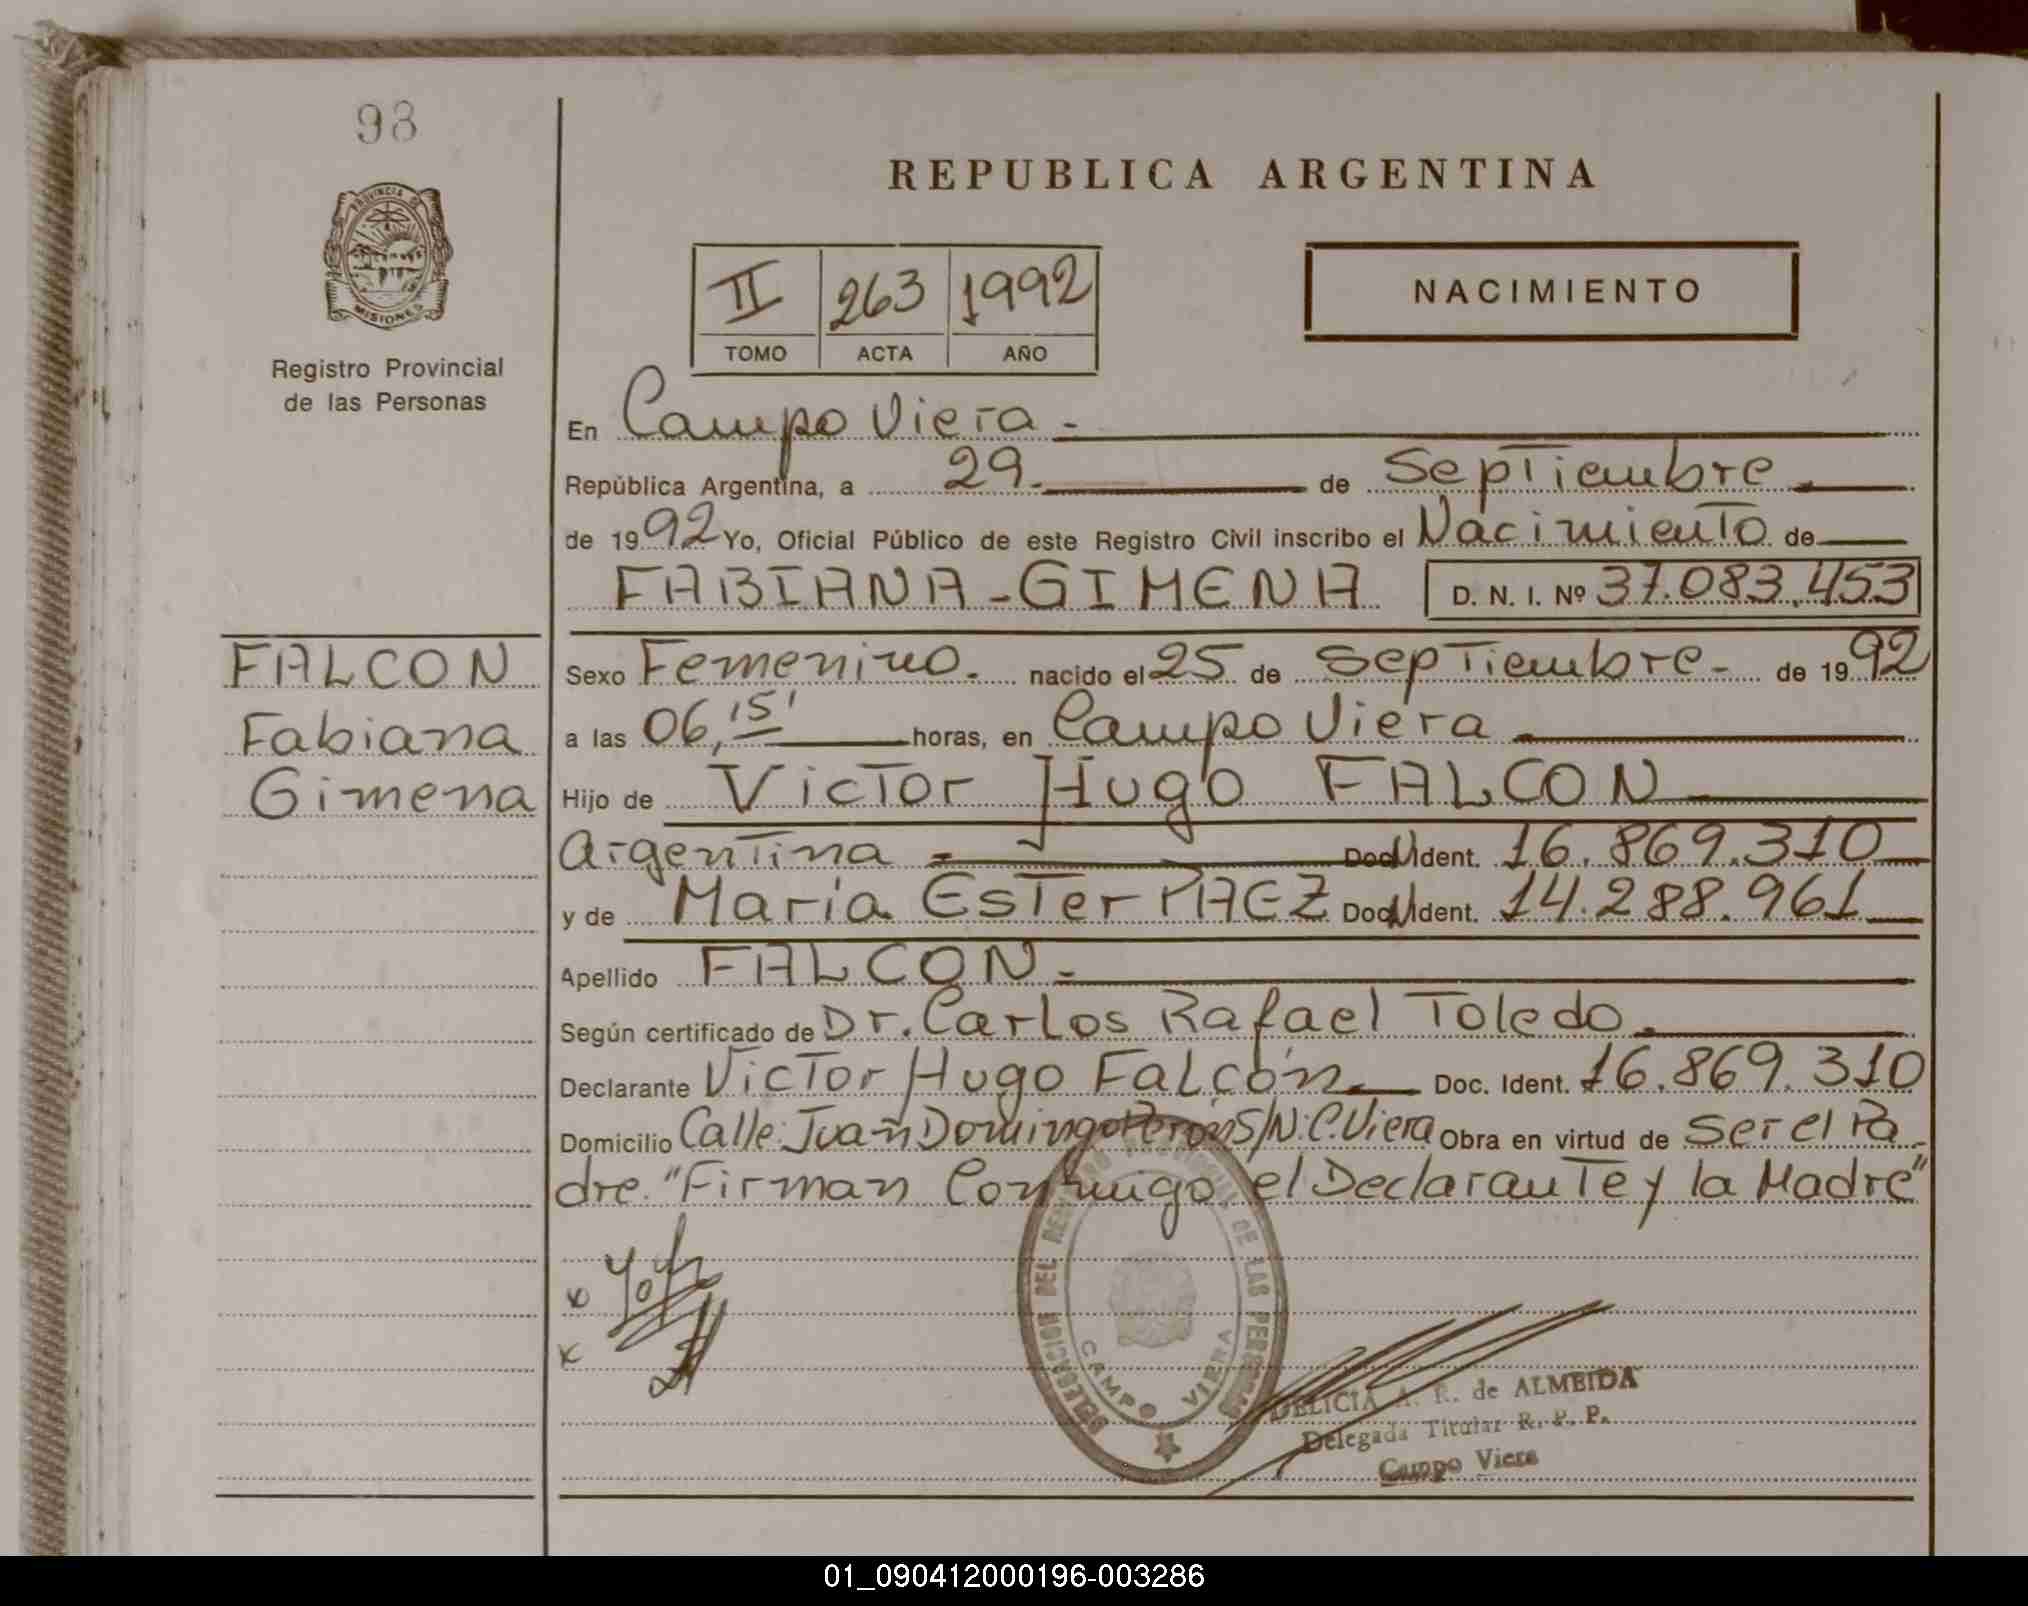 98
PROVINCIA DE
MISIONES
Registro Provincial
de las Personas
REPUBLICA ARGENTINA
II 263 1992
TOMO ACTA AÑO
NACIMIENTO
En Campo Viera.-
República Argentina, a 29.- de Septiembre.-
de 1992 Yo, Oficial Público de este Registro Civil inscribo el Nacimiento de
FABIANA-GIMENA D. N. I. Nº 37.083.453
FALCON
Fabiana
Gimena
Sexo Femenino. nacido el 25 de septiembre- de 1992
a las 06,15' horas, en Campo Viera
Hijo de Victor Hugo FALCON
Argentina - Doc. Ident. 16.869.310
y de María Ester PAEZ Doc. Ident. 14.288.961
Apellido FALCON.-
Según certificado de Dr. Carlos Rafael Toledo.
Declarante Victor Hugo Falcón. Doc. Ident. 16.869.310
Domicilio Calle: Juan Domingo Perón S/N: C. Viera Obra en virtud de ser el Pa-
dre. "Firman Conmigo el Declarante y la Madre"
x
x
DELEGACION DEL REGISTRO PROVINCIAL DE LAS PERSONAS
CAMPO VIERA
DELICIA A. R. de ALMEIDA
Delegada Titular R. P. P.
Campo Viera
01_090412000196-003286